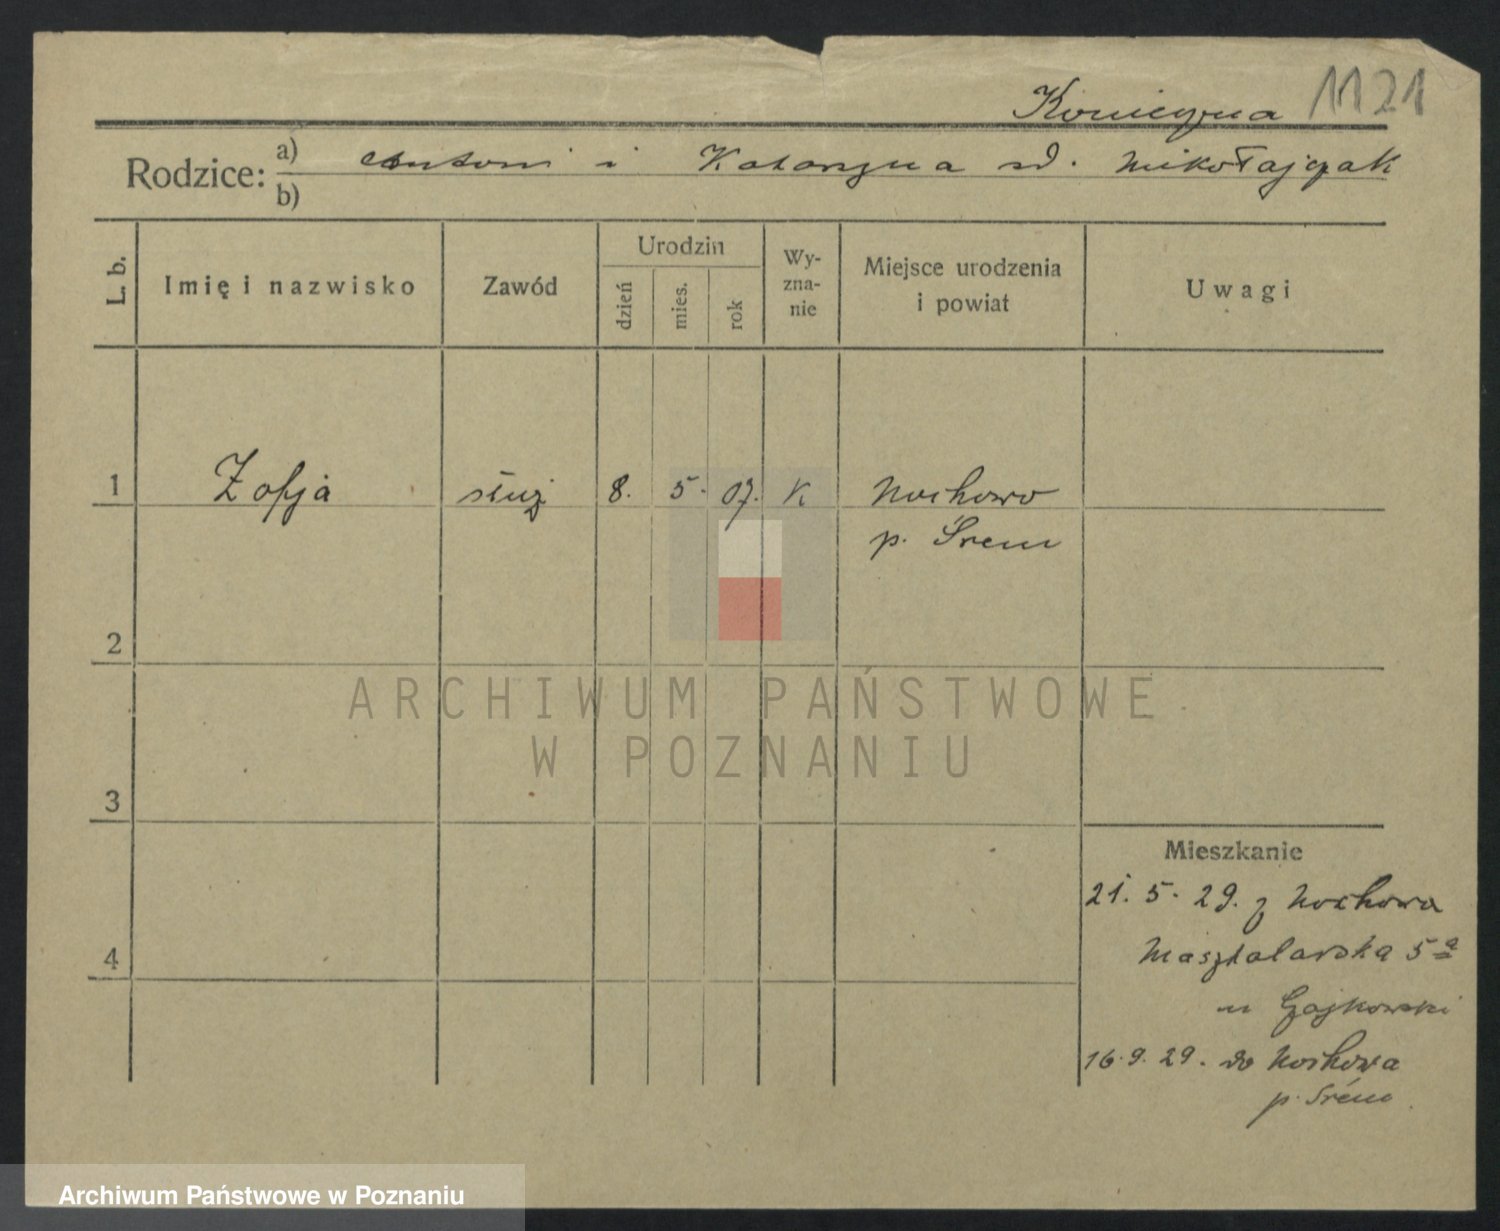 Konieczna 1121
Rodzice: a) Antoni i Katarzyna zd. Mikołajczak
b)
L. b.
Imię i nazwisko
Zawód
Urodzin
dzień
mies.
rok
Wy-
zna-
nie
Miejsce urodzenia
i powiat
Uwagi
1 Zofja służ 8. 5. 07. K Nochowo
p. Śrem
2
ARCHIWUM PAŃSTWOWE
W POZNANIU
3
Mieszkanie
21. 5. 29. z Nochowa
4
Masztalarska 5a
u Gajkowski
16. 9. 29. do Nochowa
p. Śrem
Archiwum Państwowe w Poznaniu